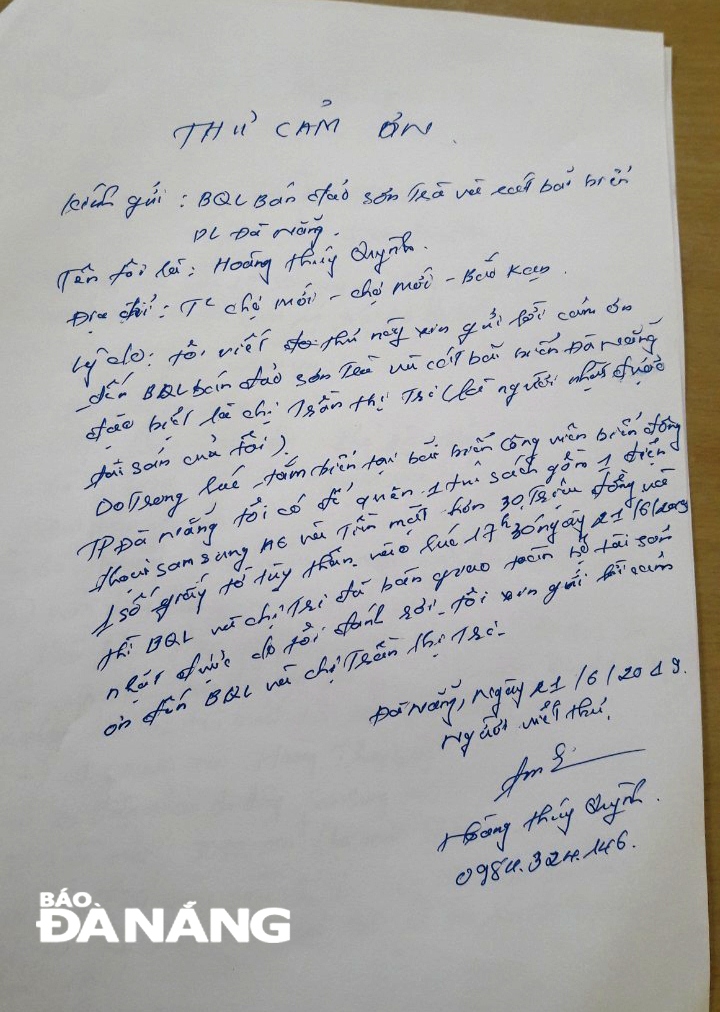 THƯ CẢM ƠN
Kính gửi : BQL Bán đảo Sơn Trà và các bãi biển
DL Đà Nẵng.
Tên tôi là : Hoàng Thúy Quỳnh.
Địa chỉ : TT chợ mới - chợ mới - Bắc Kạn.
Lý do : tôi viết thư này xin gửi lời cảm ơn
đến BQL bán đảo Sơn Trà và các bãi biển Đà Nẵng
đặc biệt là chị Trần Thị Tri (là người nhặt được
tài sản của tôi).
Do Trong lúc tắm biển tại bãi biển Công viên biển đông
TP Đà Nẵng tôi có để quên 1 túi sách gồm 1 điện
thoại samsung A6 và Tiền mặt hơn 30 Triệu đồng và
1 số giấy tờ tùy thân. vào lúc 17h30 ngày 21/6/2019
thì BQL và chị Tri đã bàn giao toàn bộ tài sản
nhặt được do tôi đánh rơi. tôi xin gửi lời cảm
ơn đến BQL và chị Trần Thị Tri.
Đà Nẵng, Ngày 21/6/2019.
Người viết thư.
Hoàng Thúy Quỳnh.
0984.324.146.
BÁO
ĐÀ NẴNG